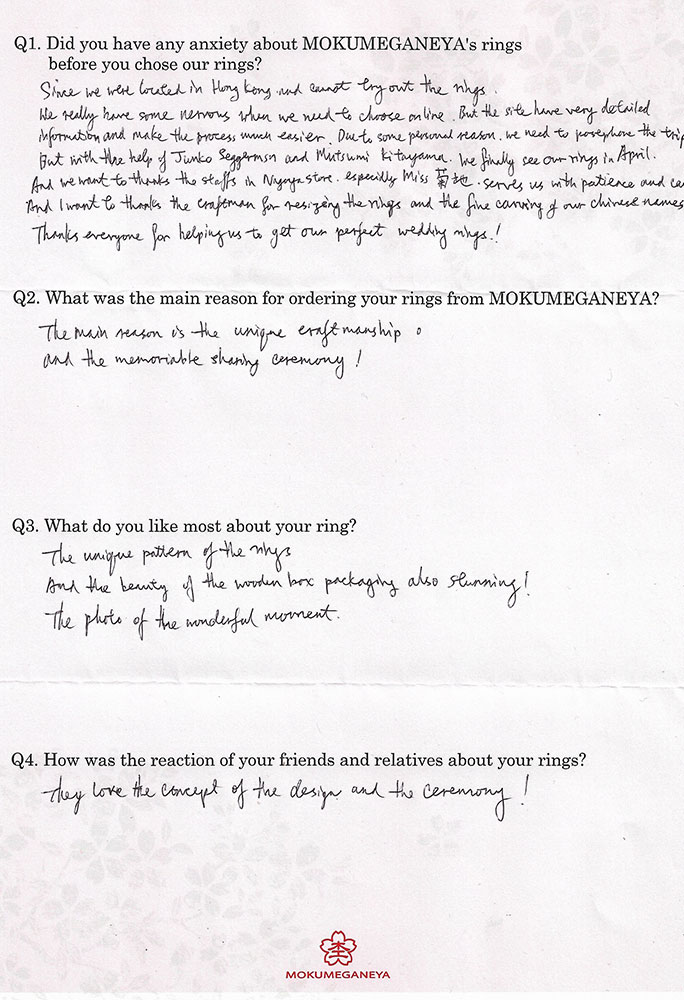 Q1. Did you have any anxiety about MOKUMEGANEYA's rings
before you chose our rings?
Since we were located in Hong Kong and cannot try out the rings.
We really have some nervous when we need to choose online. But the site have very detailed
information and make the process much easier. Due to some personal reason, we need to the trip
But with the help of Junko Seggerman and Mutsumi Kitayama. We finally see our rings in April.
And we want to thanks the staffs in store. especially Miss 菊地. serves us with patience and
And I want to thanks the craftman for resizing the rings and the fine carving of our chinese names
Thanks everyone for helping us to get our perfect wedding rings!
Q2. What was the main reason for ordering your rings from MOKUMEGANEYA?
The main reason is the unique craftmanship
and the memoriable sharing ceremony!
Q3. What do you like most about your ring?
The unique pattern of the rings
And the beauty of the wooden box packaging also stunning!
The photo of the wonderful moment.
Q4. How was the reaction of your friends and relatives about your rings?
They love the concept of the design and the ceremony!
MOKUMEGANEYA